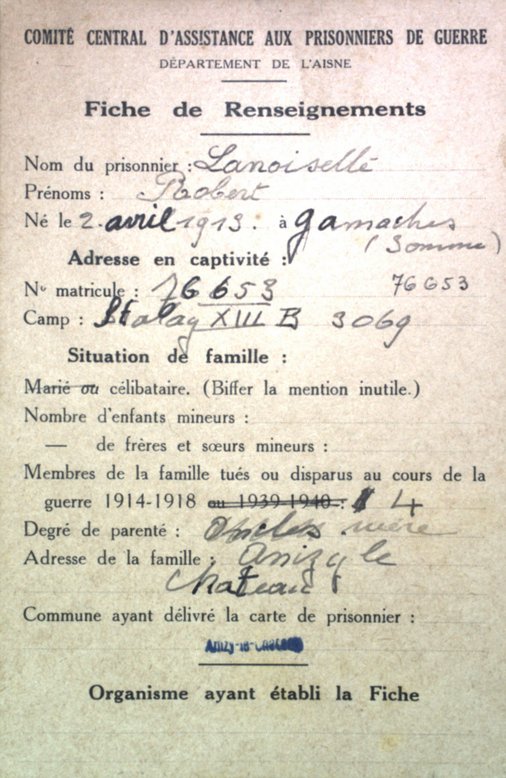 COMITÉ CENTRAL D'ASSISTANCE AUX PRISONNIERS DE GUERRE
DÉPARTEMENT DE L'AISNE
Fiche de Renseignements
Nom du prisonnier : Lanoisellé
Prénoms : Robert
Né le 2 avril 1913. à Gamaches
(Somme)
Adresse en captivité :
No matricule : 76653 76653
Camp : Stalag XIII B 3069
Situation de famille :
Marié ou célibataire. (Biffer la mention inutile.)
Nombre d'enfants mineurs :
— de frères et sœurs mineurs :
Membres de la famille tués ou disparus au cours de la
guerre 1914-1918 ou 1939-1940 : 4
Degré de parenté : oncles mère
Adresse de la famille : Anizy le
Chateau
Commune ayant délivré la carte de prisonnier :
Anizy-le-Château
Organisme ayant établi la Fiche